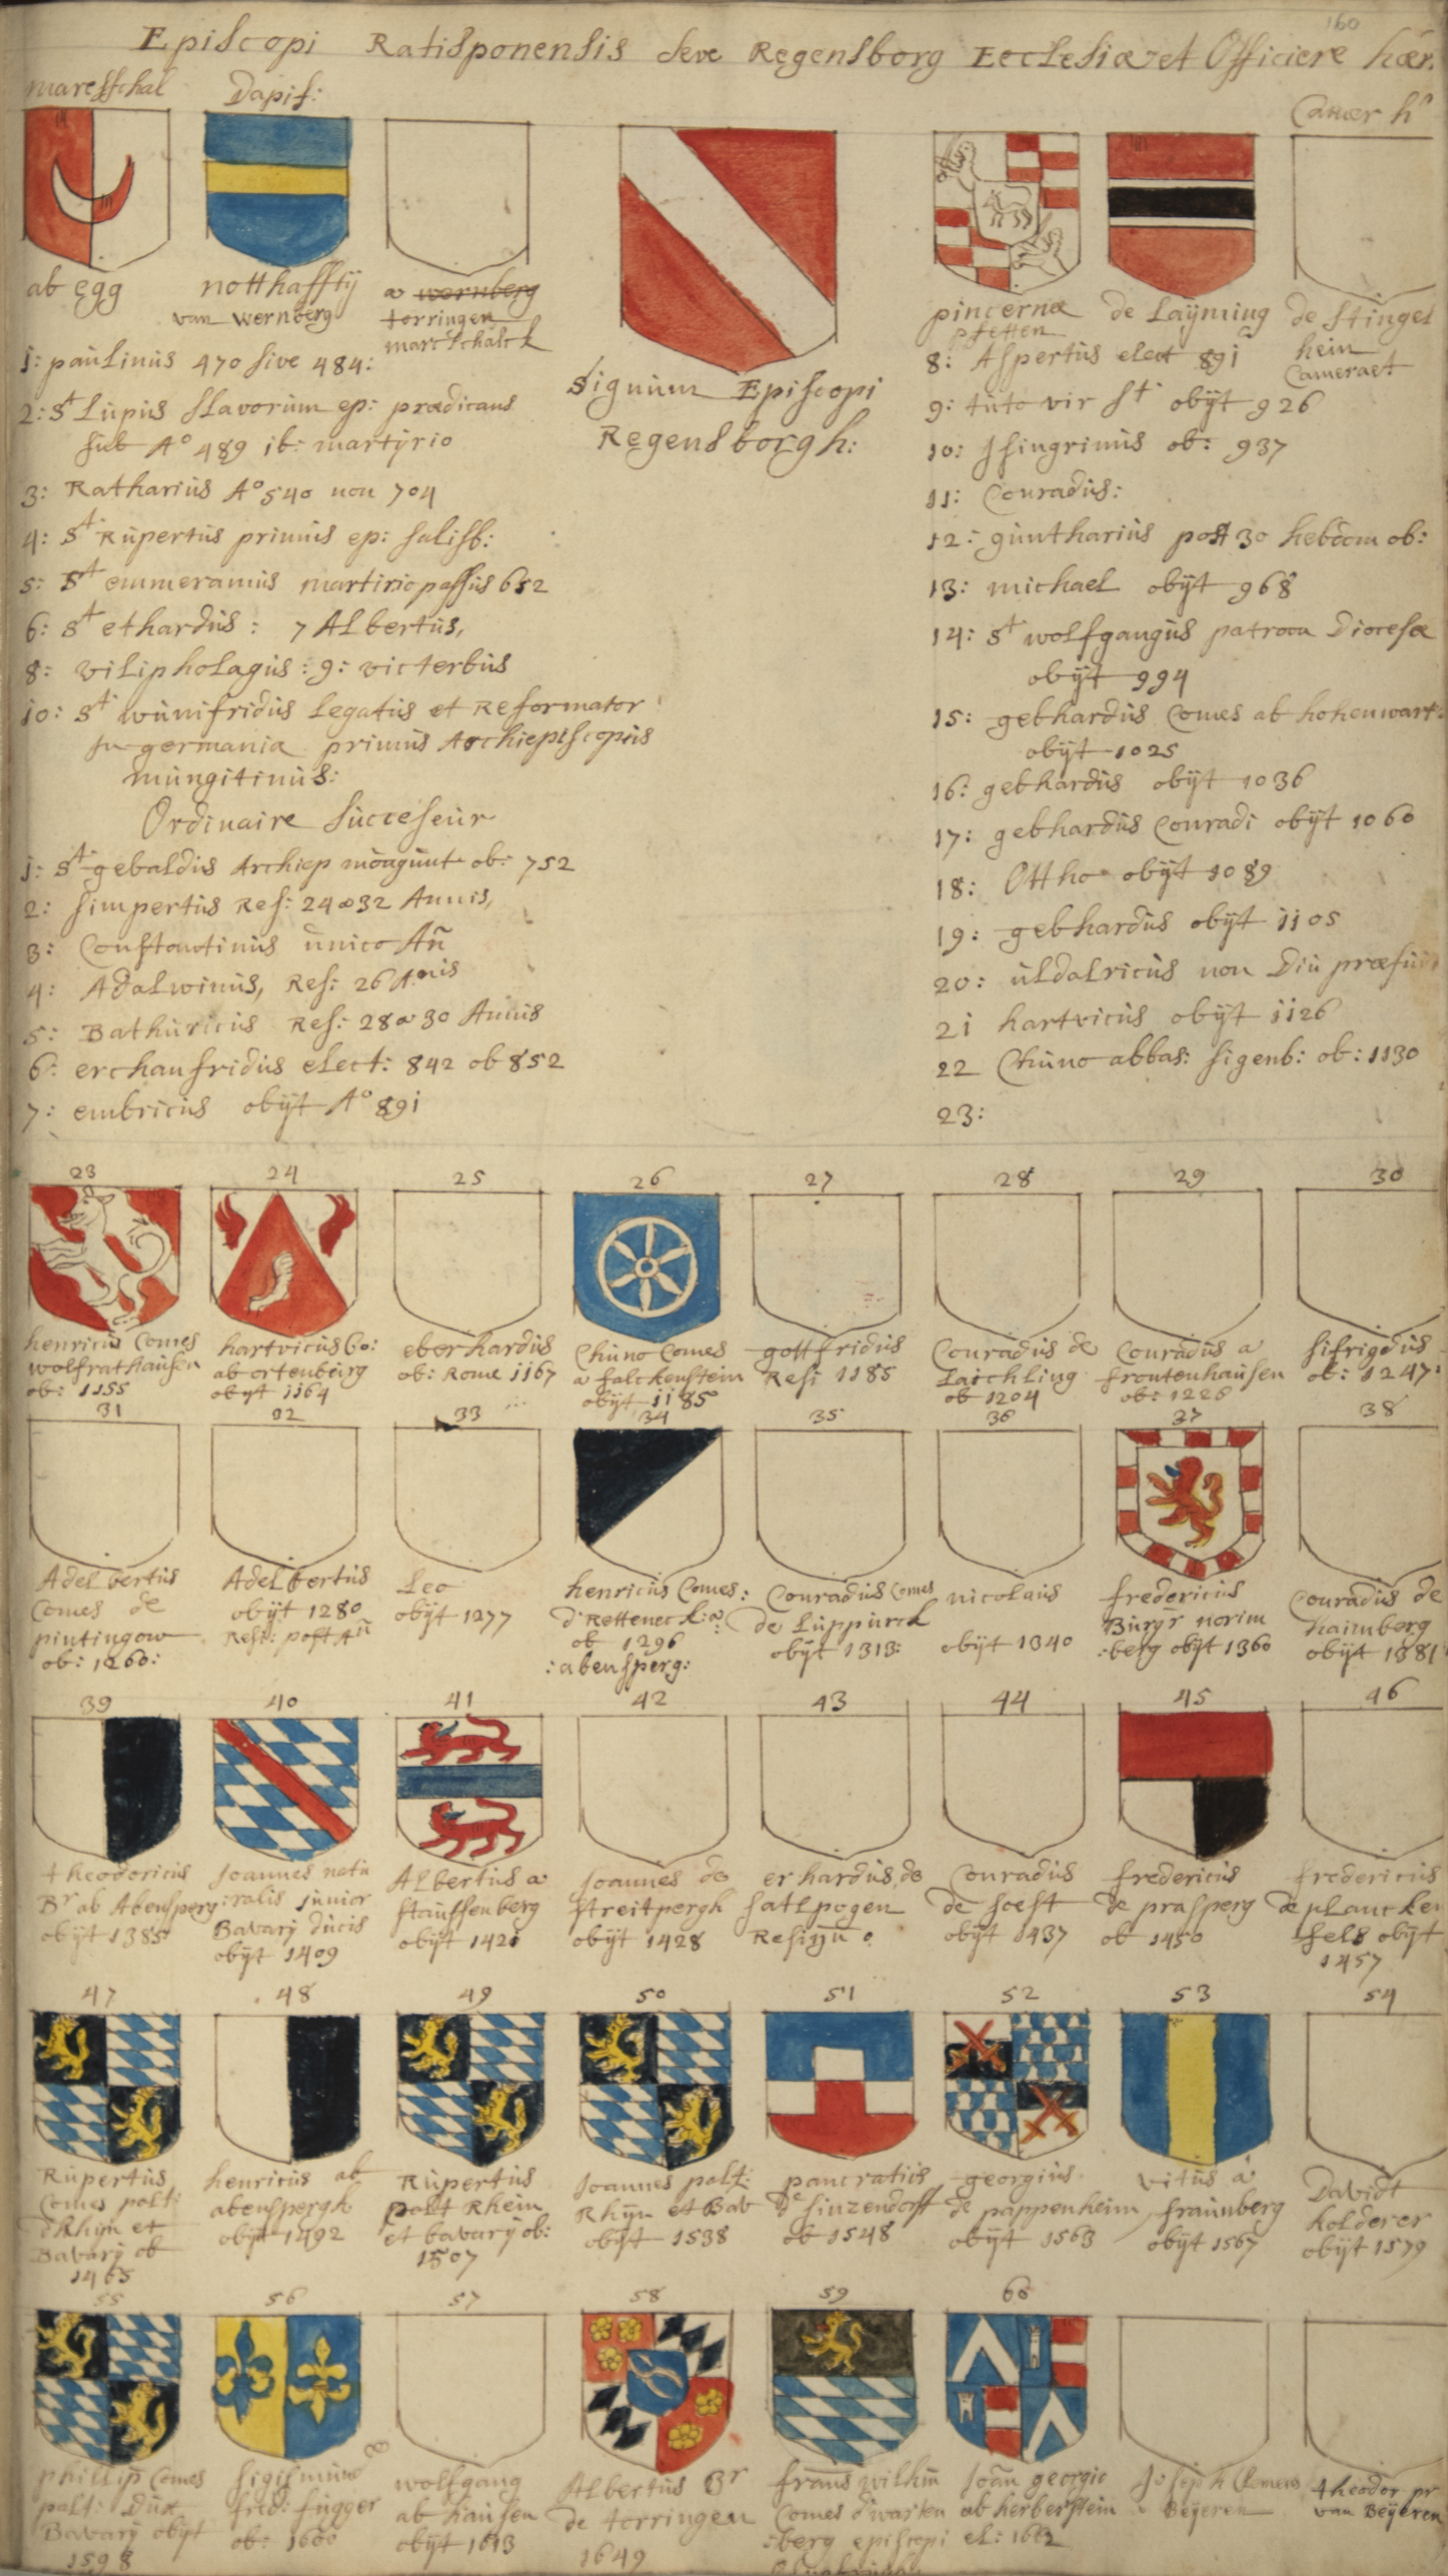 160
Episcopi Ratisponensis seve Regensborg Ecclesiæ et Officiere hær.
maresschal
Dapif:
Camer h
ab egg
notthafftij
van wernberg
a wernberg
torringen
marschalck
Signum Episcopi
Regensborgh:
pincernæ
pfetten
de Laÿming
de Stingel
hein
Cameraet
1: paulinus 470 sive 484:
2: St Lupus slavorum ep: prædicans
sub A° 489 ib: martyrio
3: Ratharius A° 540 non 704
4: St Rupertus primus ep: salisb:
5: St emmeramus martirio passus 652
6: St ethardus: 7 Albertus,
8: vilipholagus: 9: victerbus
10: St wunifridus Legatus et Reformator
in germania primus Archiepiscopus
mungitinus:
Ordinaire Successeur
1: St gebaldus Archiep mongunt ob: 752
2: simpertus Res: 24 a 32 Annis,
3: Constantinus unico Añ
4: Adalwinus, Res: 26 Anis
5: Bathuricus Res: 28 a 30 Annis
6: erchanfridus elect: 842 ob 852
7: embricus obijt A° 891
8: Aspertus elect 891
9: tuto vir St obijt 926
10: Isingrimus ob: 937
11: Conradus:
12: guntharius post 30 hebdom ob:
13: michael obijt 968
14: St wolfgangus patron Diocesæ
obijt 994
15: gebhardus Comes ab hohenwart:
obijt 1025
16: gebhardus obijt 1036
17: gebhardus Conradi obijt 1060
18: Ottho obijt 1089
19: gebhardus obijt 1105
20: uldalricus non Diu præfuit
21 hartvicus obijt 1126
22 Chuno abbas: sigenb: ob: 1130
23:
23
24
25
26
27
28
29
30
henricus Comes
wolfrathausen
ob: 1155
hartvicus Co:
ab ortenburg
obijt 1164
eberhardus
ob: Rome 1167
Chuno Comes
a falckenstein
obijt 1185
gottfridus
Resi 1185
Conradus de
Laichling
ob 1204
Conradus a
frontenhausen
ob: 1226
sifrigdus
ob: 1247:
31
32
33
34
35
36
37
38
Adelbertus
Comes de
pintingow
ob: 1260:
Adelbertus
obijt 1280
Resi: post Añ
Leo
obijt 1277
henricus Comes:
d'Rotteneck: a
ob 1296
:abensperg:
Conradus Comes
de Luppurck
obijt 1313:
nicolaus
obijt 1340
fredericus
Burgr norim
:berg obijt 1360
Conradus de
haimberg
obijt 1381
39
40
41
42
43
44
45
46
theodoricus
Br ab Abensperg:
obijt 1385
Joannes natu
:ralis junior
Bavarÿ ducis
obijt 1409
Albertus a
stauffenberg
obijt 1421
Joannes de
streitpergh
obijt 1428
erhardus de
satlpogen
Resi
Conradus
de soest
obijt 1437
fredericus
de prasperg
ob 1450
fredericus
de plancken
fels obijt
1457
47
48
49
50
51
52
53
54
Rupertus
Comes palt:
d Rhijn et
Bavarÿ ob
1465
henricus ab
abenspergh
obijt 1492
Rupertus
palt Rhein
et bavarÿ ob:
1507
Joannes palt:
Rhijn et Bav
obijt 1538
pancratius
de sinzendorff
ob 1548
georgius
de pappenheim
obijt 1563
vitus a
fraunberg
obijt 1567
Davidt
holderer
obijt 1579
55
56
57
58
59
60
phillip Comes
palt: Dux
Bavarÿ obijt
1598
sigismund
fred: fugger
ob: 1600
wolfgang
ab hausen
obijt 1613
Albertus Br
de torringen
1649
frans wilhm
Comes d'warten
:berg episcopi
Joan georgie
ab herberstein
el: 1662
Joseph Clemens
v Beÿeren
theodor pr
van Beÿeren